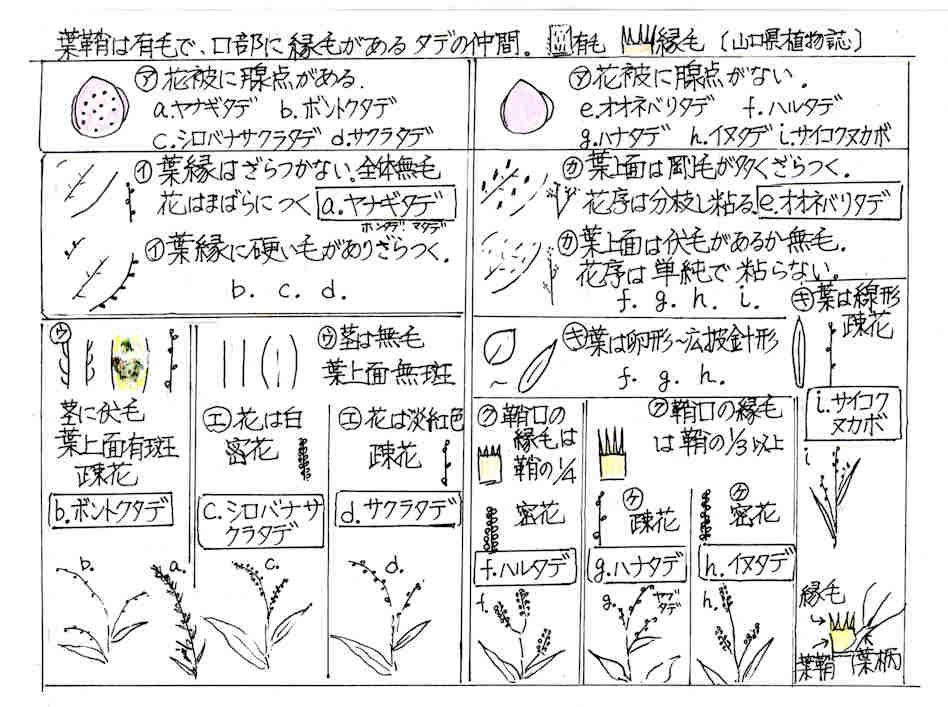 葉鞘は有毛で、口部に縁毛があるタデの仲間。 有毛 縁毛 (山口県植物誌)
ア 花被に腺点がある.
a.ヤナギタデ b.ボントクタデ
c.シロバナサクラタデ d.サクラタデ
ア 花被に腺点がない.
e.オオネバリタデ f.ハルタデ
g.ハナタデ h.イヌタデ i.サイコクヌカボ
イ 葉縁はざらつかない。全体無毛
花はまばらにつく a.ヤナギタデ
ホンタデ マタデ
イ 葉縁に硬い毛がありざらつく.
b. c. d.
カ 葉上面は剛毛が多くざらつく.
花序は分枝し粘る. e.オオネバリタデ
カ 葉上面は伏毛があるか無毛.
花序は単純で粘らない。
f. g. h. i.
ウ
茎に伏毛
葉上面有斑
疎花
b.ボントクタデ
ウ 茎は無毛
葉上面無斑
エ 花は白
密花
c.シロバナサ
クラタデ
エ 花は淡紅色
疎花
d.サクラタデ
キ 葉は卵形~広披針形
f. g. h.
キ 葉は線形
疎花
i.サイコク
ヌカボ
ク 鞘口の
縁毛は
鞘の1/4
密花
f.ハルタデ
ク 鞘口の縁毛
は鞘の1/3以上
ケ
疎花
g.ハナタデ
ケ
密花
h.イヌタデ
b. a. c. d.
f. g. ヤブ
タデ
h.
i
縁毛
葉鞘 葉柄